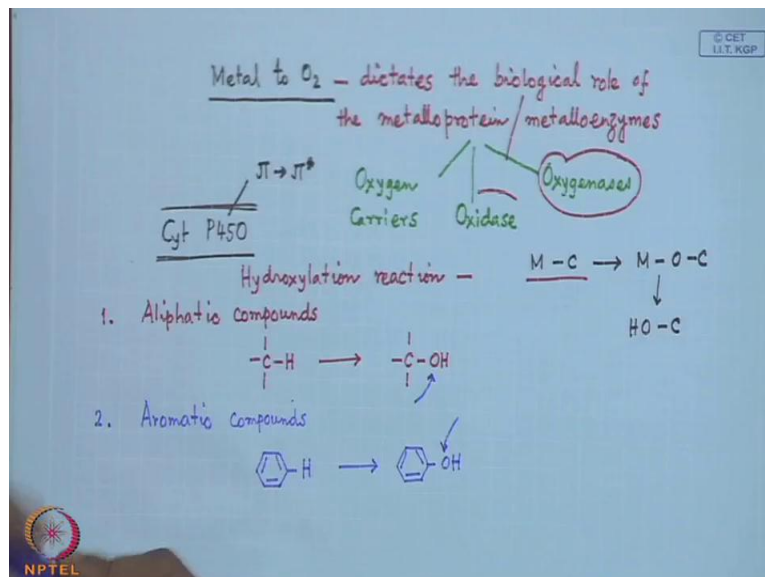 © CET
I.I.T. KGP
Metal to O₂ – dictates the biological role of
the metalloprotein/metalloenzymes
π → π*
Oxygen Carriers
Oxidase
Oxygenases
Cyt P450
Hydroxylation reaction –
M – C → M – O – C
↓
HO – C
1. Aliphatic compounds
-C-H → -C-OH
2. Aromatic compounds
-H → -OH
NPTEL